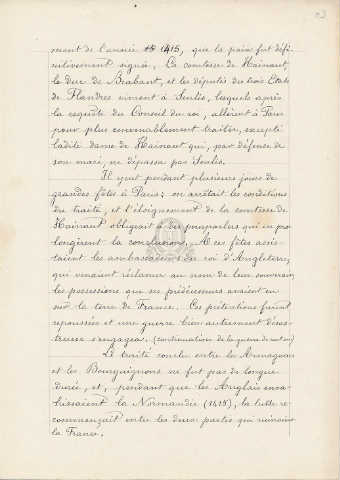 ment de l'année 1415, que la paix fut défi-
nitivement signée. La comtesse de Hainaut,
le duc de Brabant, et les députés des trois Etats
de Flandres vinrent à Senlis, lesquels après
la requête du Conseil du roi, allèrent à Paris
pour plus convenablement traiter, excepté
ladite dame de Hainaut qui, par défense de
son mari, ne dépassa pas Senlis.
Il y eut pendant plusieurs jours de
grandes fêtes à Paris; on arrêtait les conditions
du traité, et l'éloignement de la comtesse de
Hainaut obligeait à des pourparlers qui en pro-
longèrent la conclusion. A ces fêtes assis-
taient les ambassadeurs du roi d'Angleterre,
qui venaient réclamer au nom de leur souverain
les possessions que ses prédécesseurs avaient eu
sur la terre de France. Ces prétentions furent
repoussées et une guerre bien autrement désas-
treuse s'engagea. (continuation de la guerre de cent ans)
Le traité conclu entre les Armagnacs
et les Bourguignons ne fut pas de longue
durée, et, pendant que les Anglais enva-
hissaient la Normandie (1415), la lutte re-
commençait entre les deux partis qui ruinaient
la France.